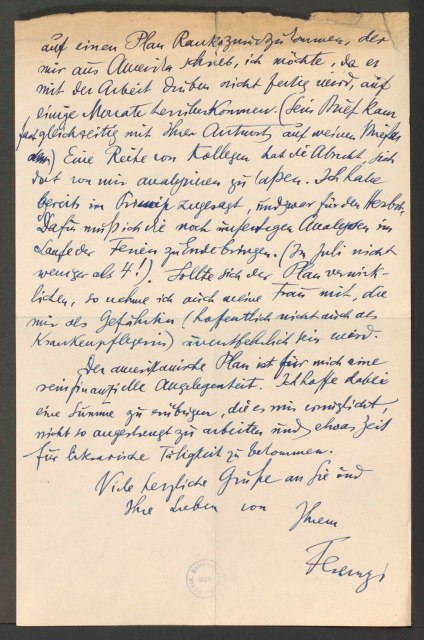 auf einen Plan Ranks zurückzukommen, der
mir aus Amerika schrieb, ich möchte, da er
mit der Arbeit drüben nicht fertig wird, auf
einige Monate herüberkommen. (Sein Brief kam
fast gleichzeitig mit Ihrer Antwort auf meinen Brief
an) Eine Reihe von Kollegen hat die Absicht, sich
dort von mir analysiren zu laßen. Ich habe
bereits im Prinzip zugesagt, und zwar für den Herbst.
Dafür muß ich die noch unfertigen Analysen im
Laufe der Ferien zu Ende bringen. (Im Juli nicht
weniger als 4!). Sollte sich der Plan verwirk-
lichen, so nehme ich auch meine Frau mit, die
mir als Gefährtin (hoffentlich nicht auch als
Krankenpflegerin) unentbehrlich sein wird.
Der amerikanische Plan ist für mich eine
rein finanzielle Angelegenheit. Ich hoffe dabei
eine Summe zu erübrigen, die es mir ermöglicht,
nicht so angestrengt zu arbeiten und etwas Zeit
für literarische Tätigkeit zu bekommen.
Viele herzliche Grüße an Sie und
Ihre Lieben von Ihrem
Ferenczi